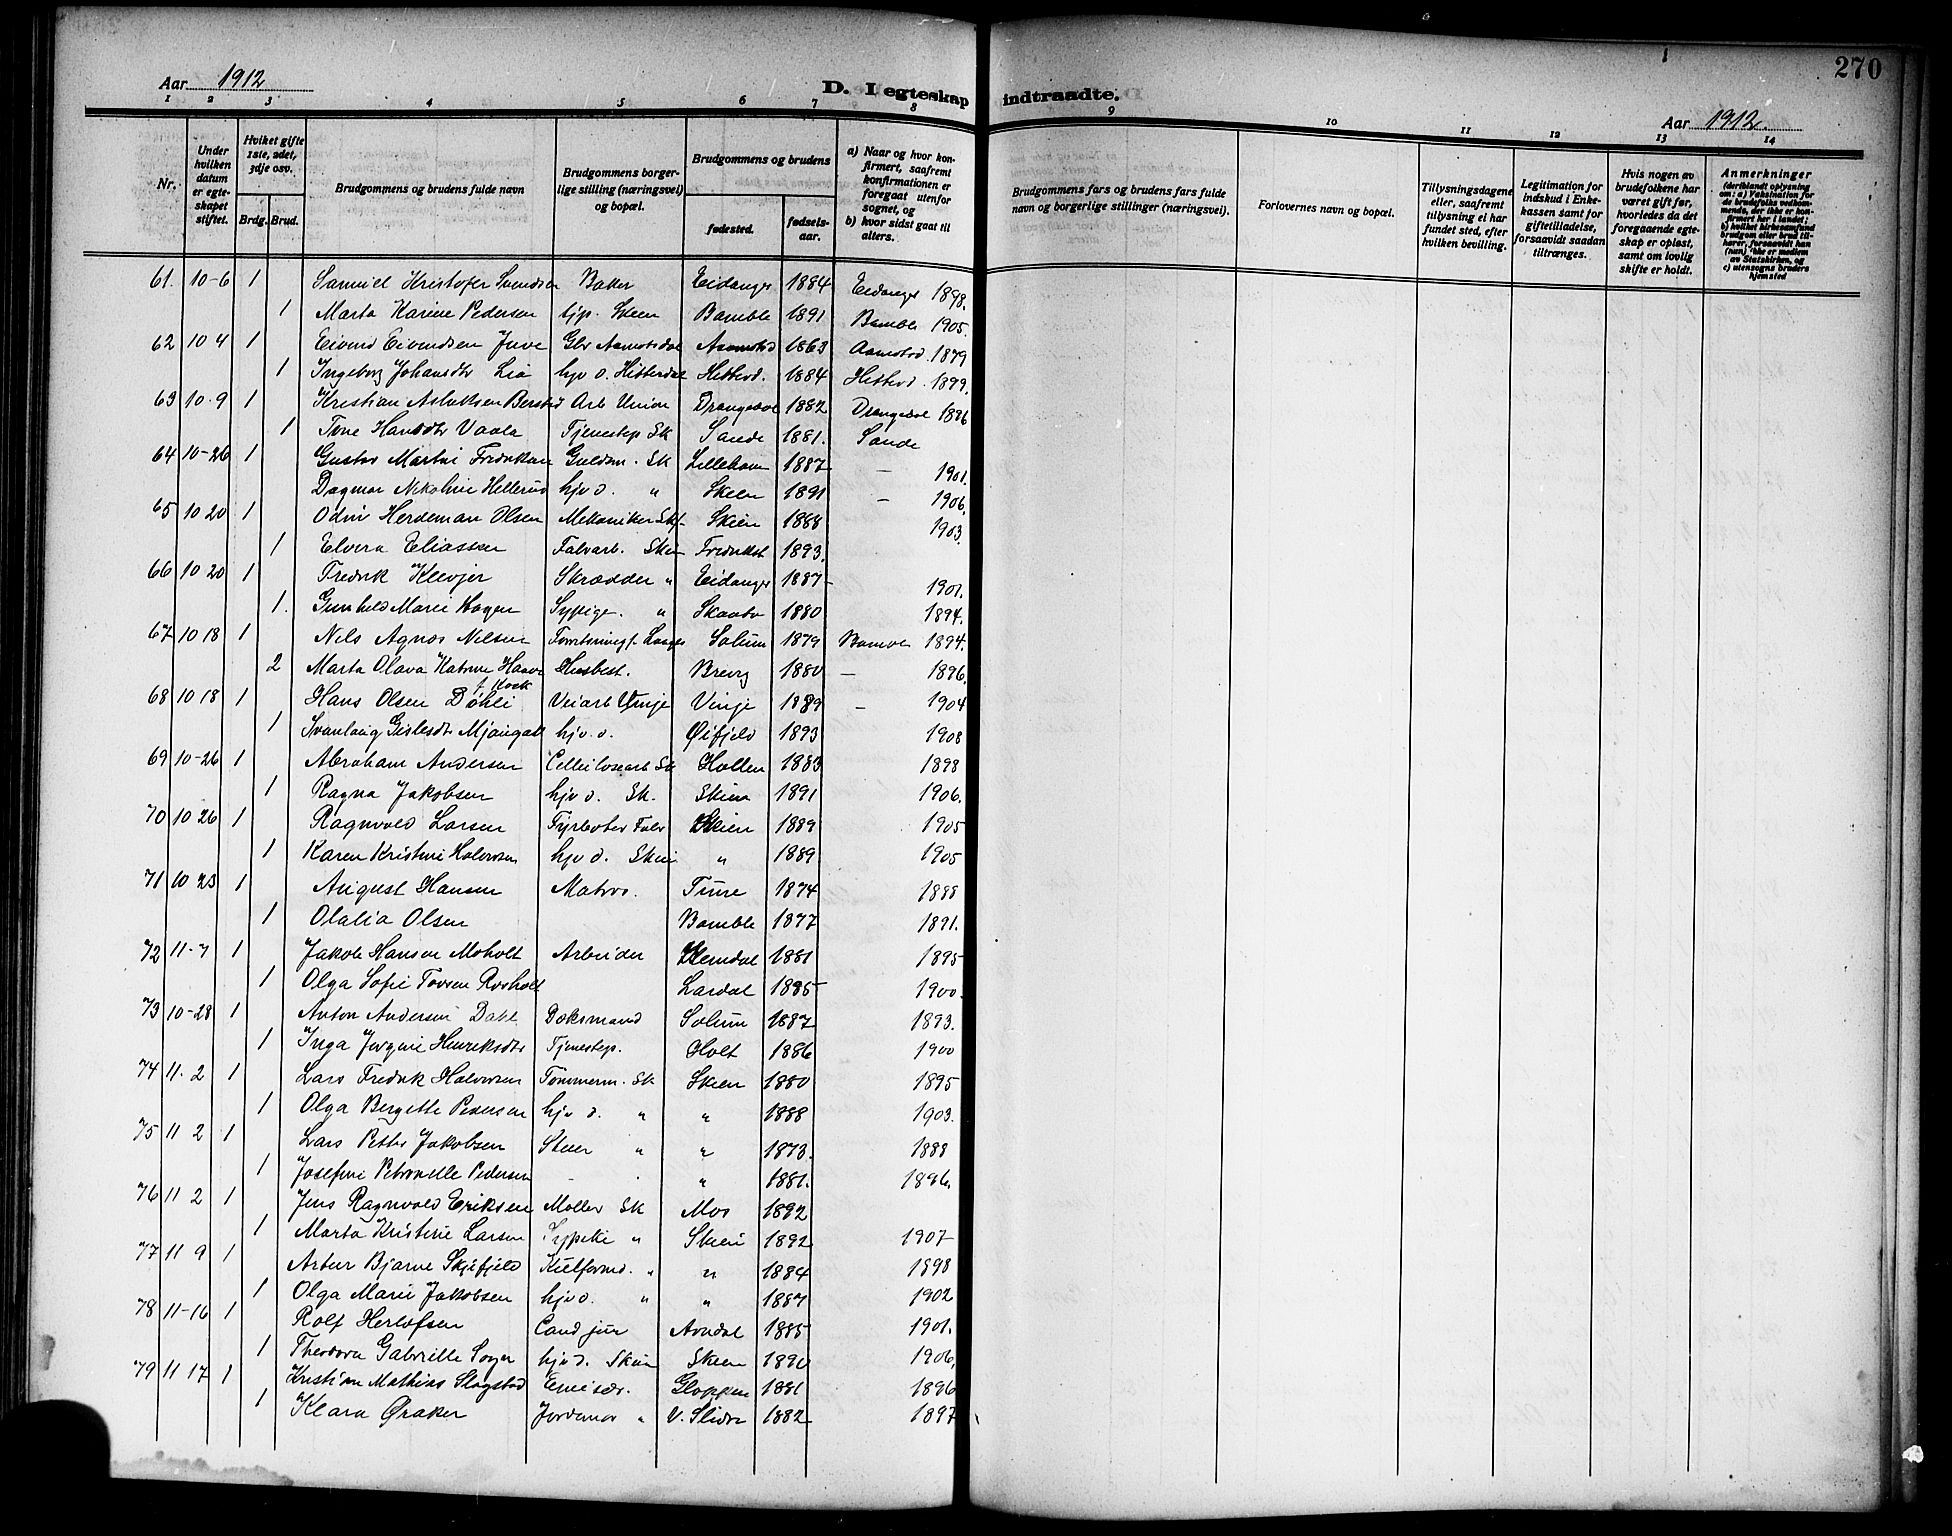 Aar 1912
D. I egteskap indtraadte.
Aar 1912.
270
1 2 3 4 5 6 7 8 9 10 11 12 13 14
Nr.
Under hvilken datum er egteskapet stiftet.
Hvilket gifte 1ste, 2det, 3dje osv.
Brdg. Brud.
Brudgommens og brudens fulde navn
Brudgommens borgerlige stilling (næringsvei) og bopæl.
Brudgommens og brudens
fødested.
fødselsaar.
a) Naar og hvor konfirmert, saafremt konfirmationen er foregaat utenfor sognet, og
b) hvor sidst gaat til alters.
Brudgommens fars og brudens fars fulde navn og borgerlige stillinger (næringsvei).
Forlovernes navn og bopæl.
Tillysningsdagene eller, saafremt tillysning ei har fundet sted, efter hvilken bevilling.
Legitimation for indskud i Enkekassen samt for giftetilladelse, forsaavidt saadan tiltrænges.
Hvis nogen av brudefolkene har været gift før, hvorledes da det foregaaende egteskap er opløst, samt om lovlig skifte er holdt.
Anmerkninger
(deriblandt oplysning om: a) Vaksination for de brudefolks vedkommende, der ikke er konfirmert her i landet; b) hvilket kirkesamfund brudgom eller brud tilhører, forsaavidt han (hun) ikke er medlem av Statskirken, og c) utensogns bruders hjemsted
61. 10-6 1 Samuel Kristofer Svendsen Baker Eidanger 1884 Eidanger 1898.
1 Marta Karine Pedersen tjp. Skien Bamble 1891 Bamble 1905.
62 10 4 1 Eivind Eivindsen Juve Gbr Aamotsdal Aamotsd 1863 Aamotsd. 1879
1 Ingeborg Johansdtr Lia hjv d. Hitterdal Hitterd. 1884 Hitterd. 1899.
63 10-9 1 Kristian Aslaksen Berstad Arb Union Drangedal 1882 Drangedal 1896
1 Tone Hansdtr Vaala Tjenestep Sk Sande 1881. Sande
64 10-26 1 Gustav Martin Fredriksen Guldsm. Sk Lilleham 1887 — 1901.
Dagmar Nikoline Hellerud hjv d. " Skien 1891 — 1906.
65 10 20 1 Odin Herdeman Olsen Mekaniker Skf. Skien 1888 1903.
1 Elvera Eliassen Fabarb. Skien Fredrikst 1893.
66 10 20 1 Fredrik Kleivjer Skrædder " Eidanger 1887 1901.
1. Gunhild Marie Hagen Sypige. " Skaatø 1880 1894.
67 10 18 1 Nils Agnar Nilsen Solum 1879 Bamble 1894.
2 Marta Olava Katrine Haave f. Kock Husbest. Brevig 1880 — 1896.
68 10 18 1 Hans Olsen Döhli Veiarb Vinje Vinje 1889 — 1904
1 Svanlaug Gislesdtr Mjaugedl hjv. d. Øifjeld 1893 1908
69 10-26 1 Abraham Andersen Cellulosearb Sk Hollen 1883 1898
1 Ragna Jakobsen hjv d. Sk. Skien 1891 1906.
70 10 26 1 Ragnvald Larsen Fyrbøter Fabr Skien 1889 1905
1 Karen Kristine Halvorsen hjv d. Skien " 1889 1905
71 10 23 1 August Hansen Matros. Tune 1874 1888
1 Olalia Olsen Bamble 1877 1891.
72 11-7 1 Jakob Hansen Moholt Arbeider 1881 1895
1 Olga Sofie Tovsen Rosholt Lardal 1885 1900.
73 10-28 1 Anton Andersen Dahl Baksmand Solum 1887 1893.
1 Inga Jorgine Henriksdtr Tjenestep. Holt 1886 1900
74 11. 2 1 Lars Fredrik Halvorsen Tømmerm. Sk Skien 1880 1895
1 Olga Bergitte Pedersen hjv d. " " 1888 1903.
75 11 2 1 Lars Petter Jakobsen Stuer " " 1873. 1888
1 Josefine Petronelle Pedersen " 1881. 1896.
76 11 2 1 Jens Ragnvald Eriksen Møller Sk Mos 1892
1 Marta Kristine Larsen Sypike " Skien 1892 1907
77 11 9 1 Artur Bjarne Skifjeld Kulform. " " 1884 1898
1 Olga Marie Jakobsen hjv d. " " 1887 1902
78 11-16 1 Rolf Herlofsen Cand jur Arndal 1885 1901.
1 Theodora Gabrielle Soyer hjv d. Skien Skien 1890 1906.
79 11 17 1 Kristian Mathias Slagstad Emisær. Gloppen 1881 1896
1 Klara Øraker Jordemor " V. Slidre 1882 1897